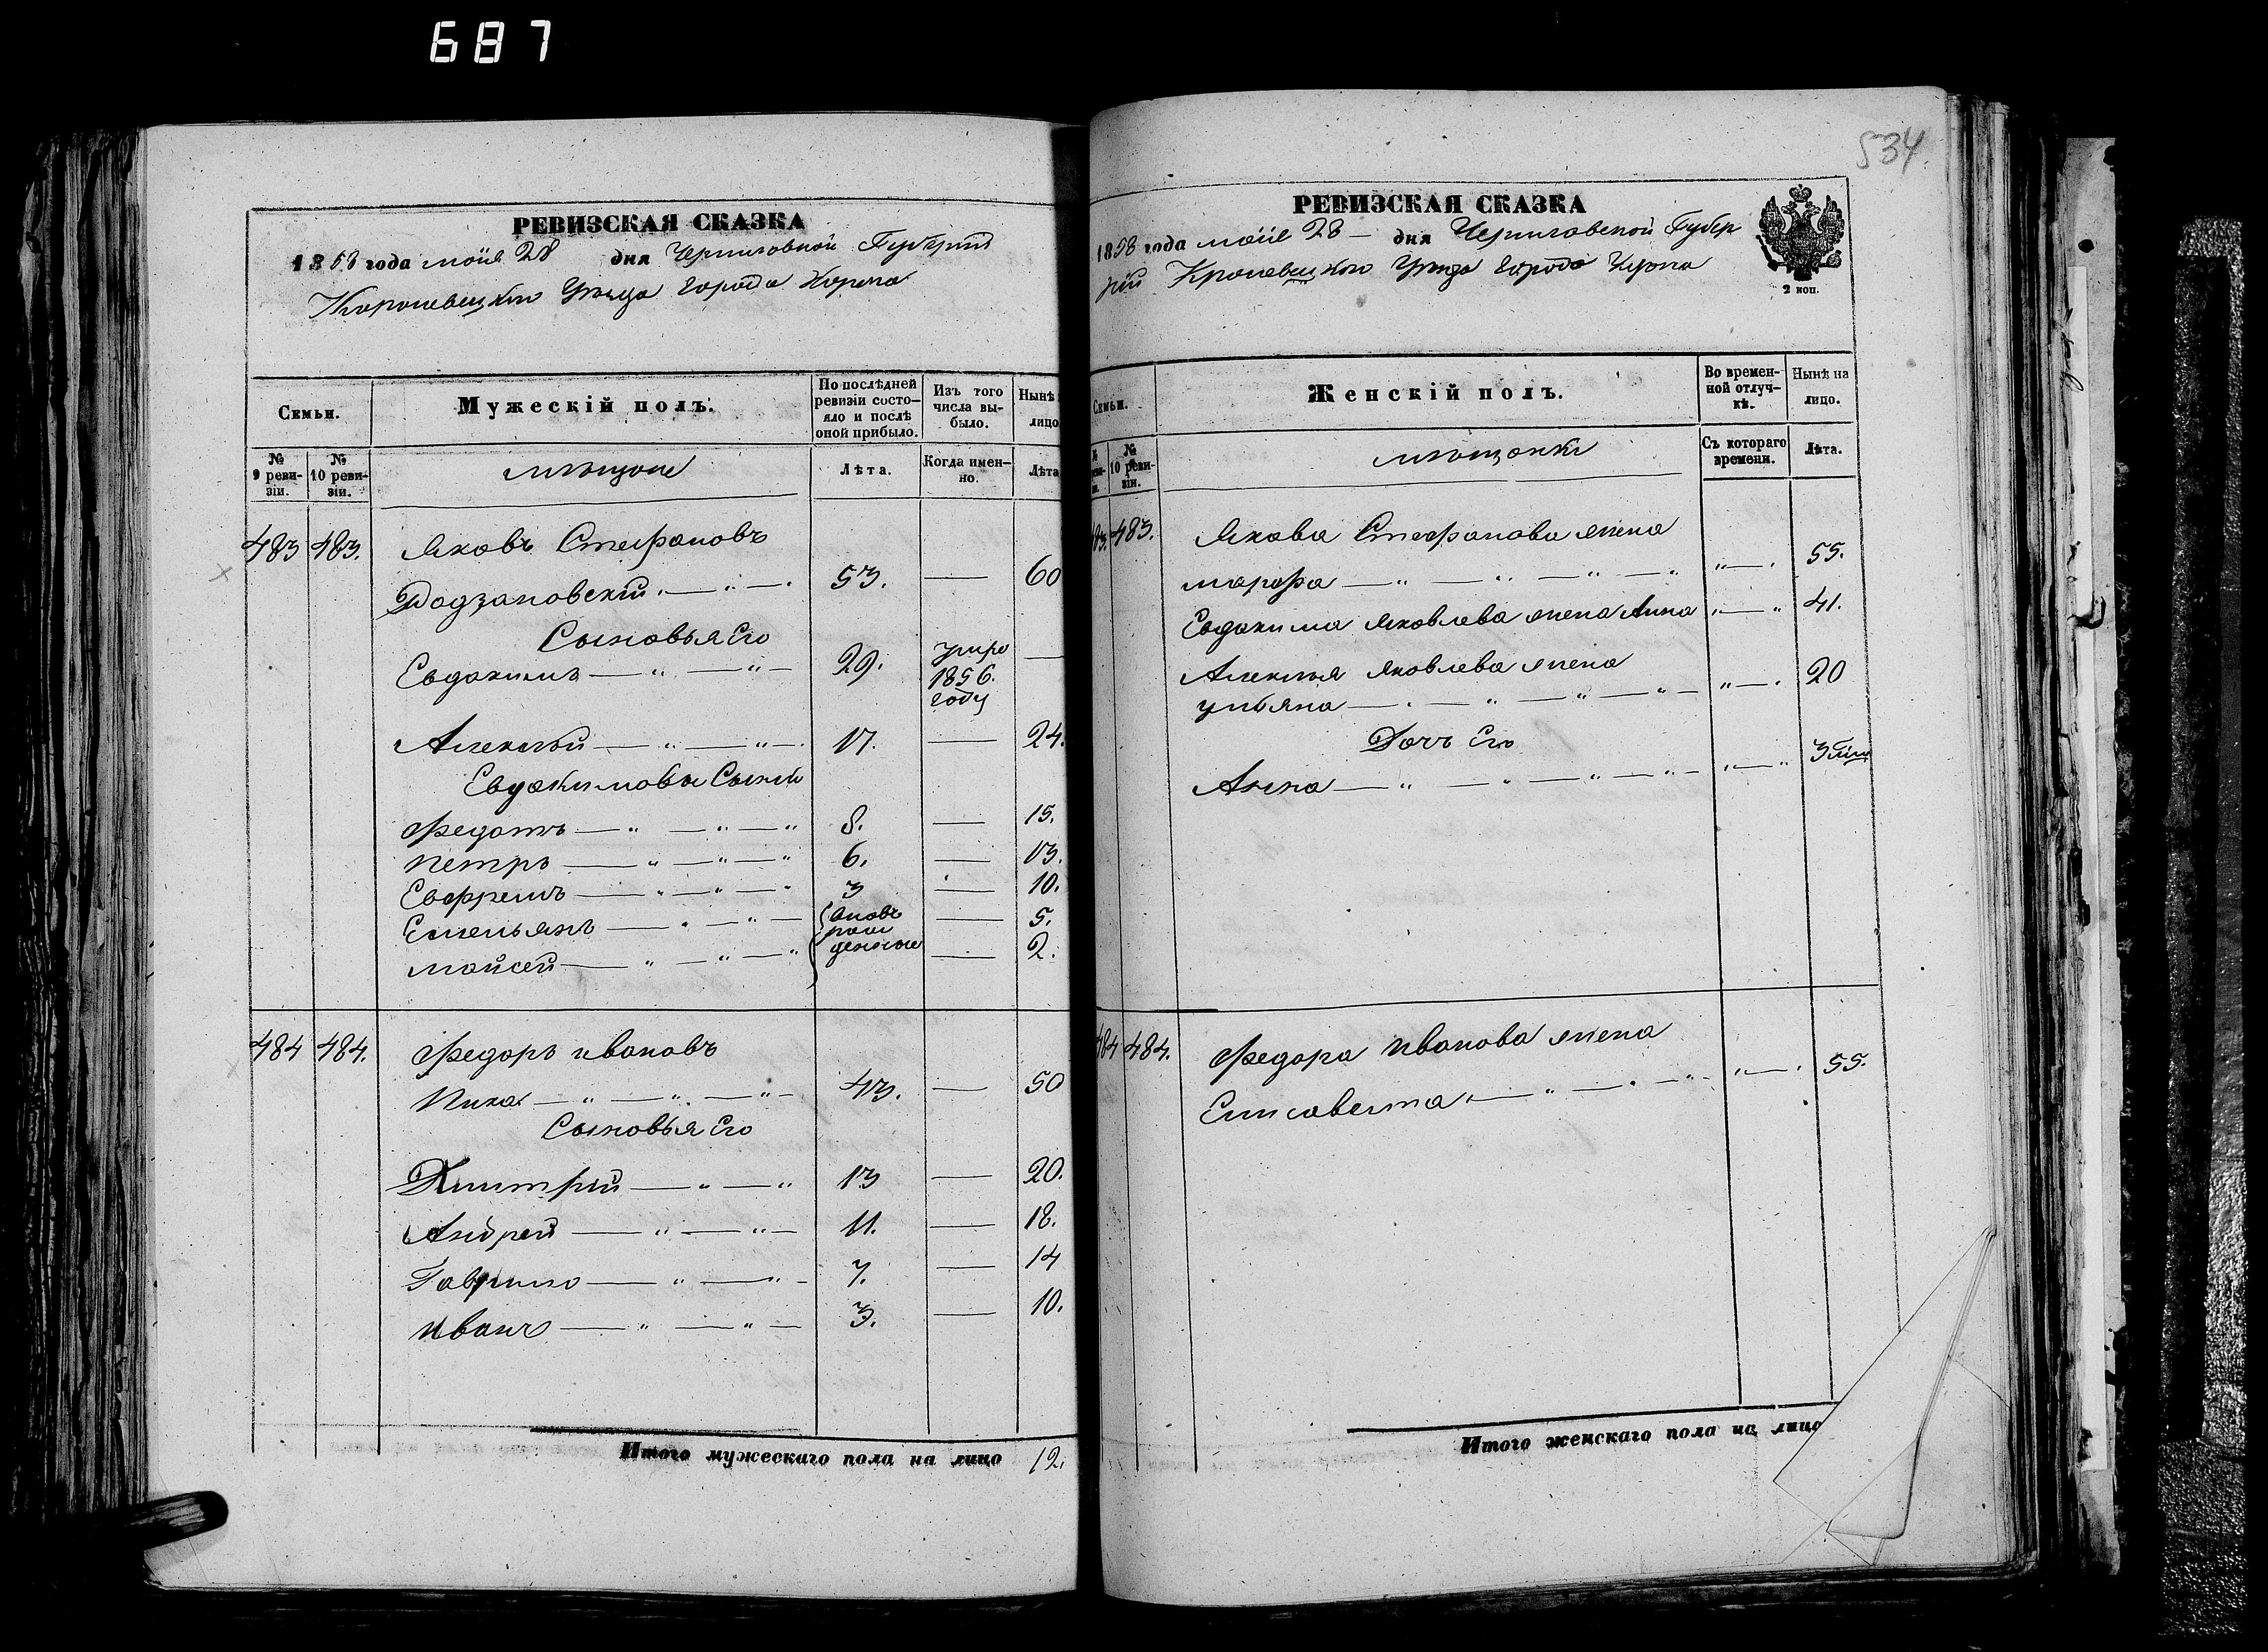 687
534
РЕВИЗСКАЯ СКАЗКА
1858 года маія 28 дня Черниговской Губерніи
Короповецкаго Уѣзда Города Коропа
Семьи.
Мужескій полъ.
По послѣдней ревизіи состояло и послѣ оной прибыло.
Изъ того числа выбыло.
Нынѣ
лицо
№ 9 ревизіи.
№ 10 ревизіи.
мѣщане
Лѣта.
Когда именно.
Лѣта
483 483. Яковъ Стефановъ
53. — 60
Сыновья Его
Евдакимъ — " — " — 29. умре 1856. году —
Алексѣй — " — " — 17. — 24.
Евдакимовы Сыны
Федотъ — " — " — " 8. — 15.
Петръ — " — " — " 6. — 13.
Евфремъ — " — " — " 3 — 10.
Емельянъ — " — " — вновь рожденные — 5.
Мойсей — " — " — " — 2.
484 484. Федоръ Ивановъ
Пика — " — " — " — 43. — 50
Сыновья Его
Дмитрій — " — " 13 — 20.
Андрей — " — " — 11. — 18.
Гаврило — " — " — 7. — 14
Иванъ — " — " — 3. — 10.
Итого мужескаго пола на лицо 12.
РЕВИЗСКАЯ СКАЗКА
1858 года маія 28 — дня Черниговской Губер
ніи Кролевецкаго Уѣзда Города Коропа
2 коп.
Семьи.
Женскій полъ.
Во временной отлучкѣ.
Нынѣ на лицо.
№ 10 ревизіи.
мѣщанки
Съ котораго времени.
Лѣта.
483. Якова Стефанова жена
Марфа — " — " — " — " " — . 55.
Евдакима Яковлева жена Анна " — " 41.
Алексѣя Яковлева жена
Ульяна — " — " — " — " — " — . 20
Дочь Его
Анна — " — " — " — " — " — " 3
484 484. Федора Иванова жена
Елисавета — " — " — " — " — . 55.
Итого женскаго пола на лицо